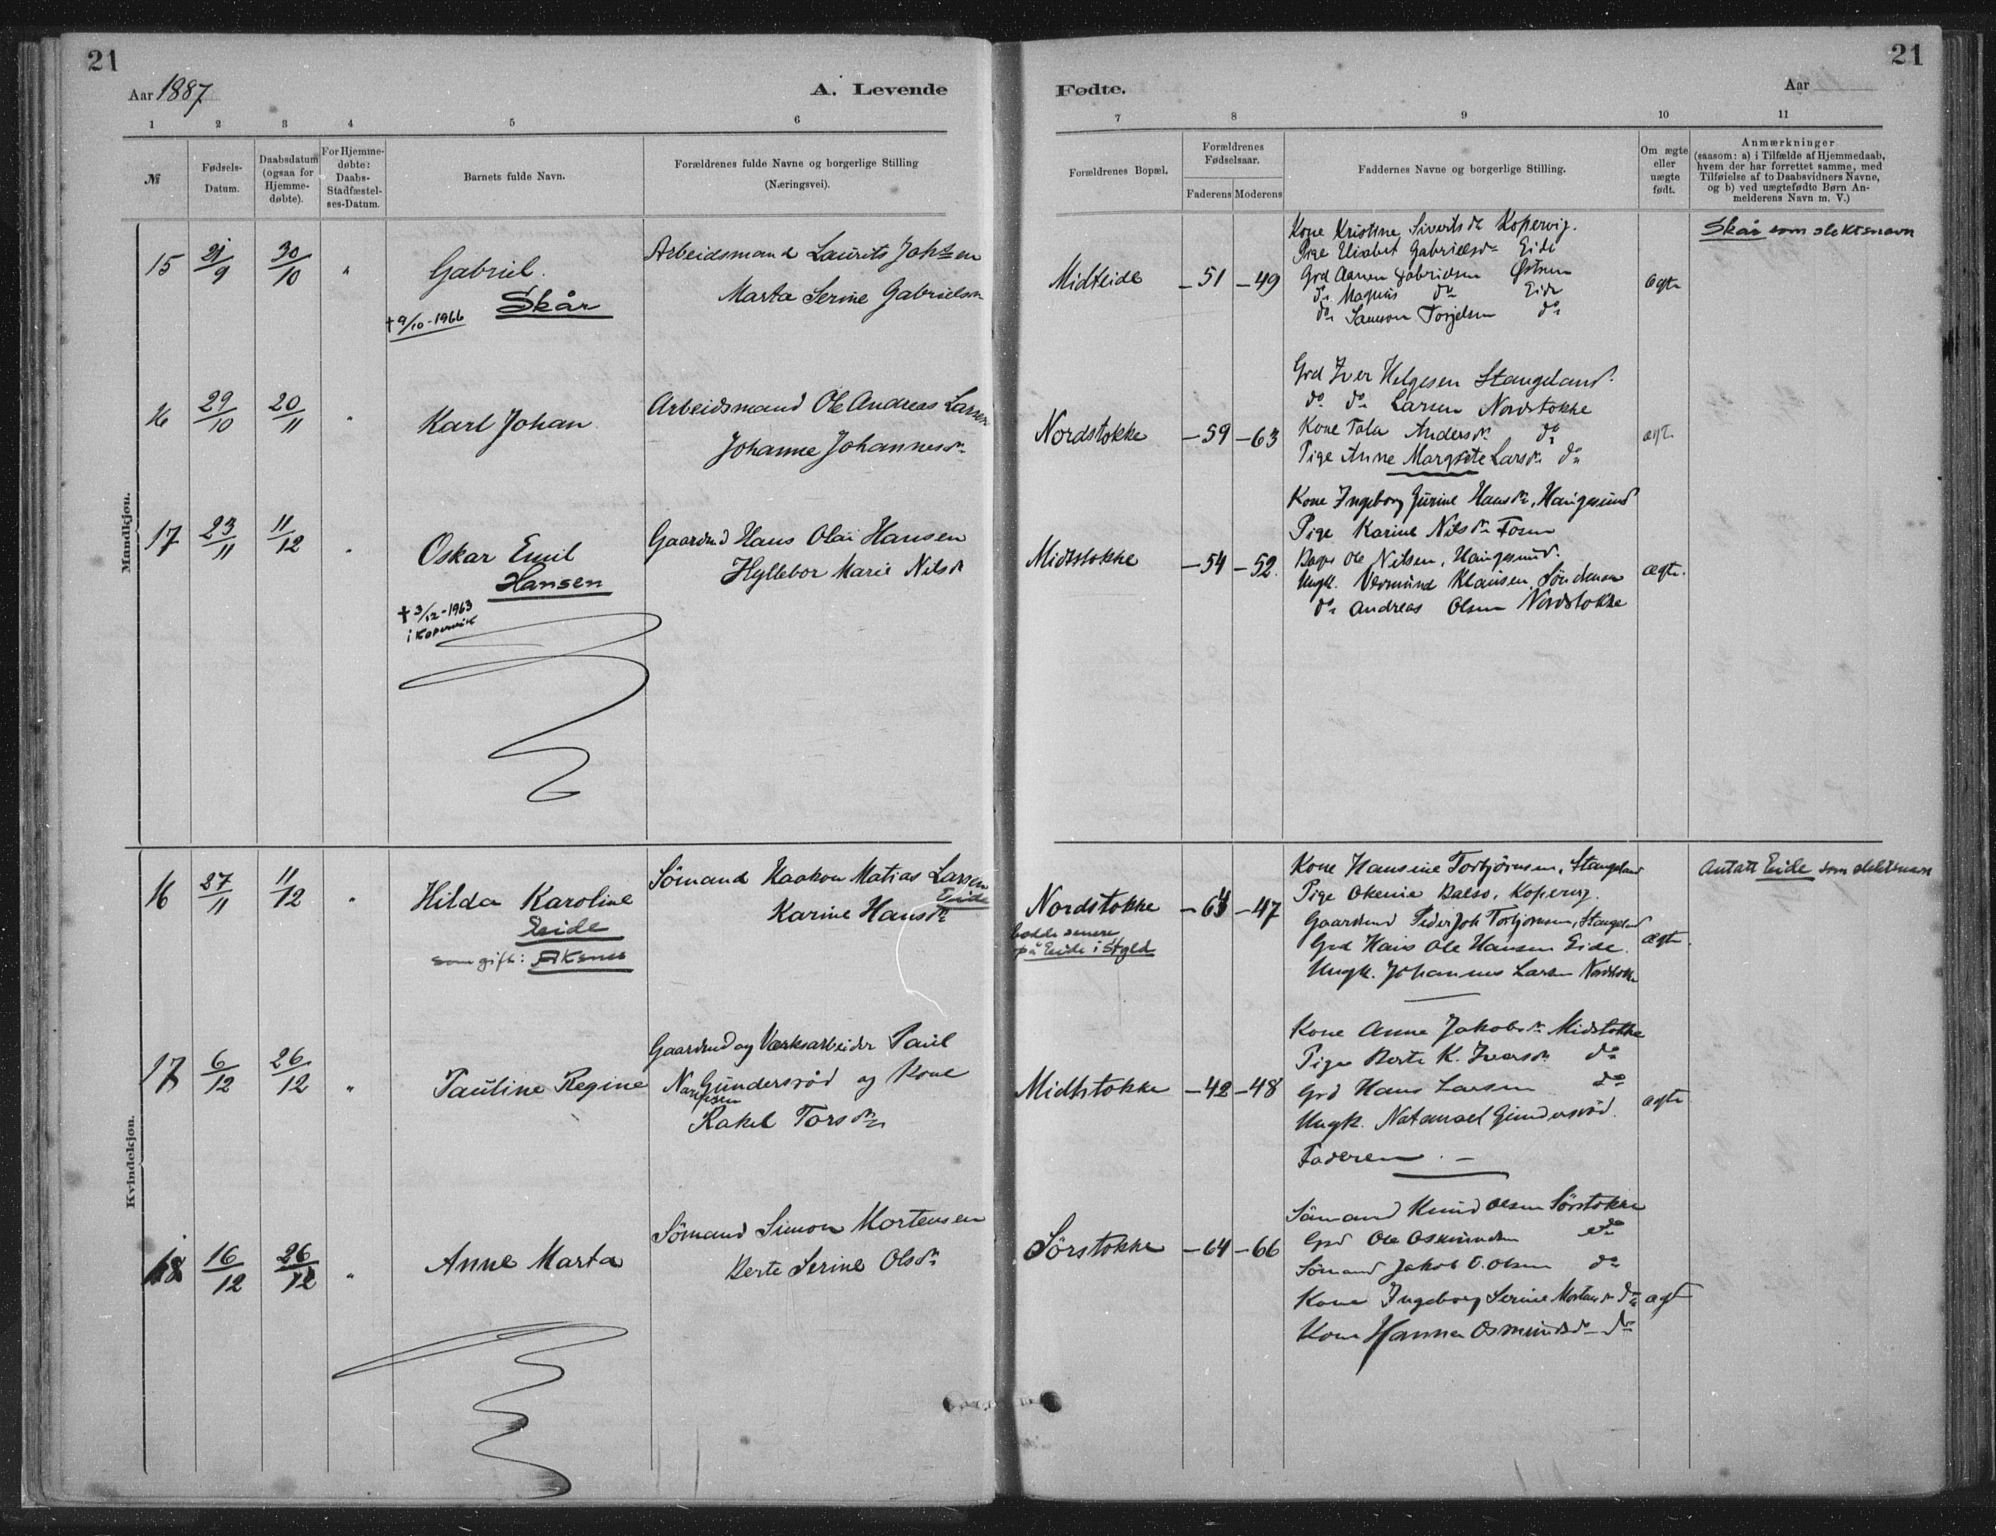 21
21
Aar 1887
A. Levende
Fødte.
Aar
1 2 3 4 5 6
7 8 9 10 11
№
Fødsels-
Datum.
Daabsdatum
(ogsaa for
Hjemme-
døbte).
For Hjemme-
døbte:
Daabs-
Stadfæstel-
ses-Datum.
Barnets fulde Navn.
Forældrenes fulde Navne og borgerlige Stilling
(Næringsvei).
Forældrenes Bopæl.
Forældrenes
Fødselsaar.
Faderens Moderens
Faddernes Navne og borgerlige Stilling.
Om ægte
eller
uægte
født.
Anmærkninger
(saasom: a) i Tilfælde af Hjemmedaab,
hvem der har forrettet samme, med
Tilføielse af to Daabsvidners Navne,
og b) ved uægtefødte Børn An-
melderens Navn m. V.)
Mandkjøn.
15
21/9
30/10
"
Gabriel.
Skår
†9/10-1966
Arbeidsmand Laurits
Marta Serine Gabrielsdr
Midteide
-51 -49
Kone Kristine Sivertsdr Kopervig.
Pige Elisabet Gabrielsdr Eide
Grd Aanen Gabrielsen
do Magnus do Eide
do Samson Torjelsen do
ægte
Skår som slektsnavn
16
29/10
20/11
"
Karl Johan
Arbeidsmand Ole Andreas Larsen
Johanne Johannesdr
Nordstokke
-59 -63
Grd Iver Helgesen Stangeland.
do do Larsen Nordstokke
Kone Tala Andersdr do
Pige Anne Margrete Larsdr do
ægt.
17
23/11
11/12
"
Oskar Emil
Hansen
† 3/12-1963
i Kopervik
Gaardmd Hans Olai Hansen
Hyllebor Marie Nilsdr
Midtstokke
-54 -52.
Kone Ingeborg Gurine Hansdr, Haugesund
Pige Karine Nilsdr
Ole Nilsen, Haugesund.
Ungk. Vermund Klausen
do Andreas Olsen Nordstokke
ægte.
Kvindekjøn.
16
27/11
11/12
"
Hilda Karoline
Eide
som gift:
Sømand Haakon Matias Larsen
Eide
Karine Hansdr
Nordstokke
bodde senere
på Eide i Stgld
-64 -47
Kone Hansine Torbjørnsen, Stangeland
Pige Okenie Dalso, Kopervig.
Gaardmd Peder Joh Torbjørnsen, Stangeland
Grd Hans Ole Hansen Eide.
Ungk. Johannes Larsen Nordstokke
ægte.
Antatt Eide som slektsnavn
17
6/12
26/12
"
Pauline Regine
Gaardmd og Værksarbeider Paul
Gundersrød og Kone
Rakel Torsdr
Midtstokke
-42 -48
Kone Anne Jakobsdr Midstokke
Pige Berte K. Iversdr do
Grd Hans Larsen do
Ungk. Natanael Gundersrød.
Faderen. —
ægte
18
16/12
26/12
"
Anne Marta
Sømand Simon Mortensen
Berte Serine Olsdr
Sørstokke
-64 -66
Sømand Knud Olsen Sørstokke
Grd Ole Osmundsen do
Sømand Jakob O. Olsen do
Kone Ingeborg Serine Mortensdr do
Kone Hanna Osmundsdr do
ægt